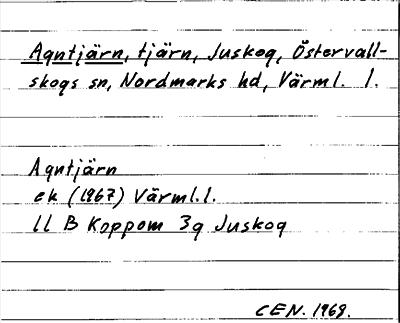 Agntjärn, tjärn, Juskog, Östervall-
skogs sn, Nordmarks hd, Värml. l.
Agntjärn
ek (1967) Värml.l.
11 B Koppom 3g Juskog
CEN. 1969.